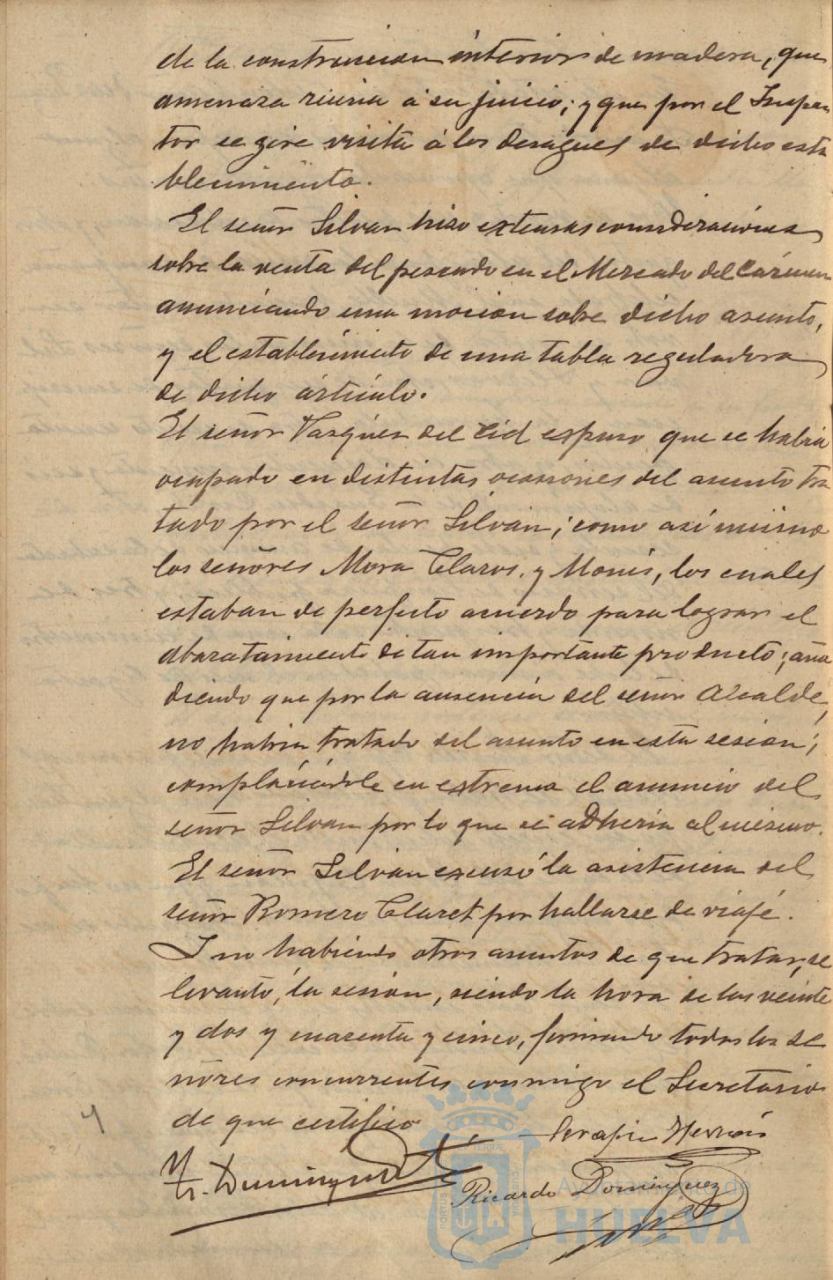 de la construccion interior de madera, que
amenaza ruina á su juicio; y que por el Inspec
tor se gire visita á los desagües de dicho esta
blecimiento.
El señor Silvan hizo extensas consideraciones
sobre la venta del pescado en el Mercado del Cármen
anunciando una mocion sobre dicho asunto,
y el establecimiento de una tabla reguladora
de dicho artículo.
El señor Vazquez del Cid expuso que se habia
ocupado en distintas ocasiones del asunto tra
tado por el señor Silván; como así mismo
los señores Mora Claros, y Monís, los cuales
estaban de perfecto acuerdo para lograr el
abaratamiento de tan importante producto; aña
diendo que por la ausencia del señor Alcalde,
no habia tratado del asunto en esta sesion;
complaciéndole en extremo el anuncio del
señor Silvan por lo que se adheria al mismo.
El señor Silván excusó la asistencia del
señor Romero Claret por hallarse de viaje.
I no habiendo otros asuntos de que tratar, se
levantó, la sesión, siendo la hora de las veinte
y dos y cuarenta y cinco, firmando todos los se
ñores concurrentes conmigo el Secretario
de que certifico
Serafin
Dominguez
Ricardo Dominguez
Ayuntamiento de
HUELVA